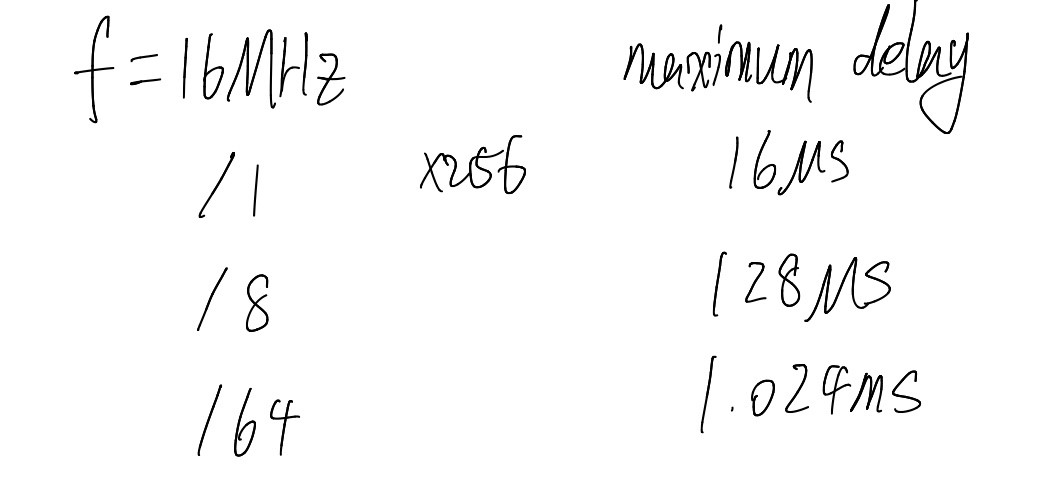 f = 16MHz maximum delay
/1 x256 16μs
/8 128μs
/64 1.024ms